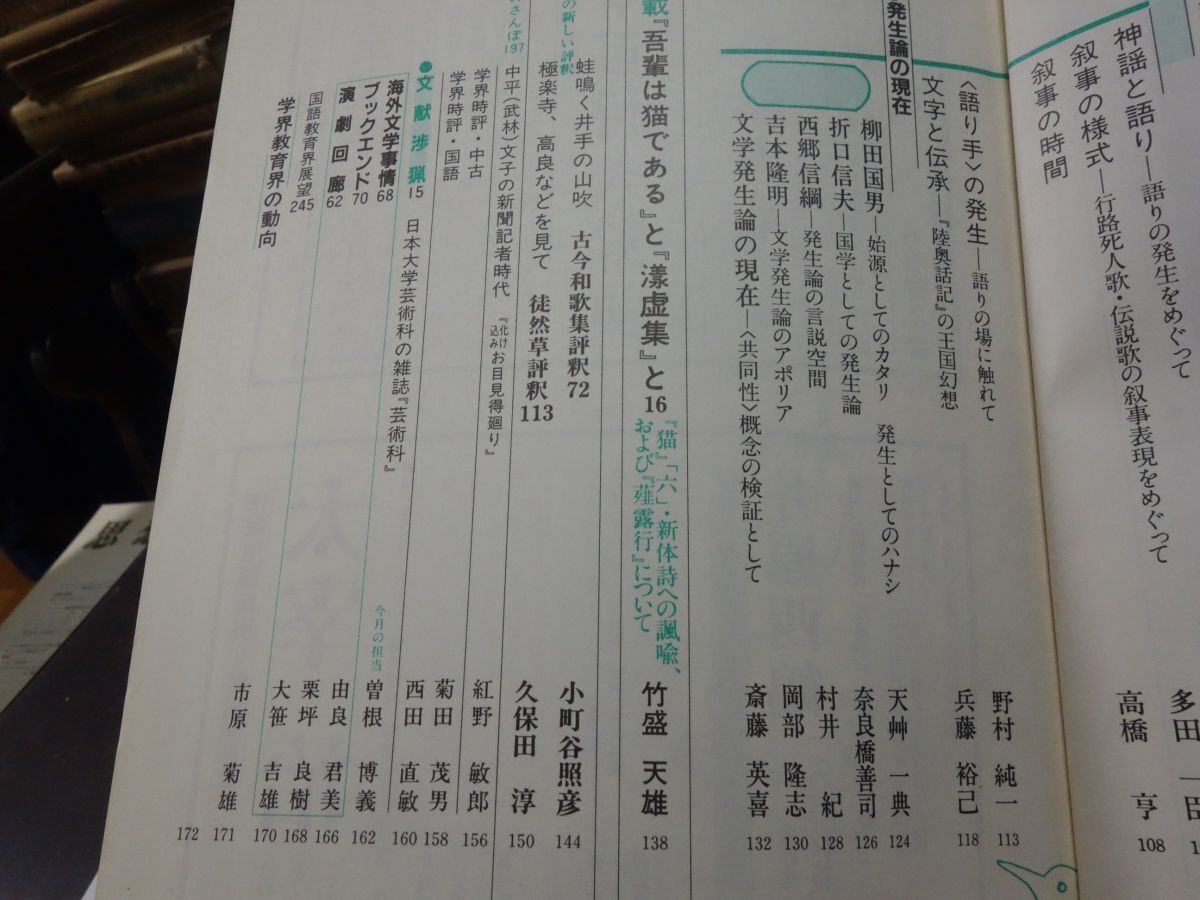 神謡と語り―語りの発生をめぐって
多田一
叙事の様式―行路死人歌・伝説歌の叙事表現をめぐって
叙事の時間
高橋 亨 108
〈語り手〉の発生―語りの場に触れて
野村 純一 113
文字と伝承―『陸奥話記』の王国幻想
兵藤 裕己 118
発生論の現在
柳田国男―始源としてのカタリ 発生としてのハナシ
天艸 一典 124
折口信夫―国学としての発生論
奈良橋善司 126
西郷信綱―発生論の言説空間
村井 紀 128
吉本隆明―文学発生論のアポリア
岡部 隆志 130
文学発生論の現在―〈共同性〉概念の検証として
斎藤 英喜 132
載『吾輩は猫である』と『漾虚集』と16
『猫』「六」・新体詩への諷喩、
および『薤露行』について
竹盛 天雄 138
の新しい評釈
蛙鳴く井手の山吹 古今和歌集評釈72
小町谷照彦 144
極楽寺、高良などを見て 徒然草評釈113
久保田 淳 150
さんぽ197
中平(武林)文子の新聞記者時代 『化け込みお目見得廻り』
紅野 敏郎 156
学界時評・中古
菊田 茂男 158
学界時評・国語
西田 直敏 160
●文献渉猟15 日本大学芸術科の雑誌『芸術科』
今月の担当
曽根 博義 162
海外文学事情68
由良 君美 166
ブックエンド70
栗坪 良樹 168
演劇回廊62
大笹 吉雄 170
国語教育界展望245
市原 菊雄 171
学界教育界の動向
172